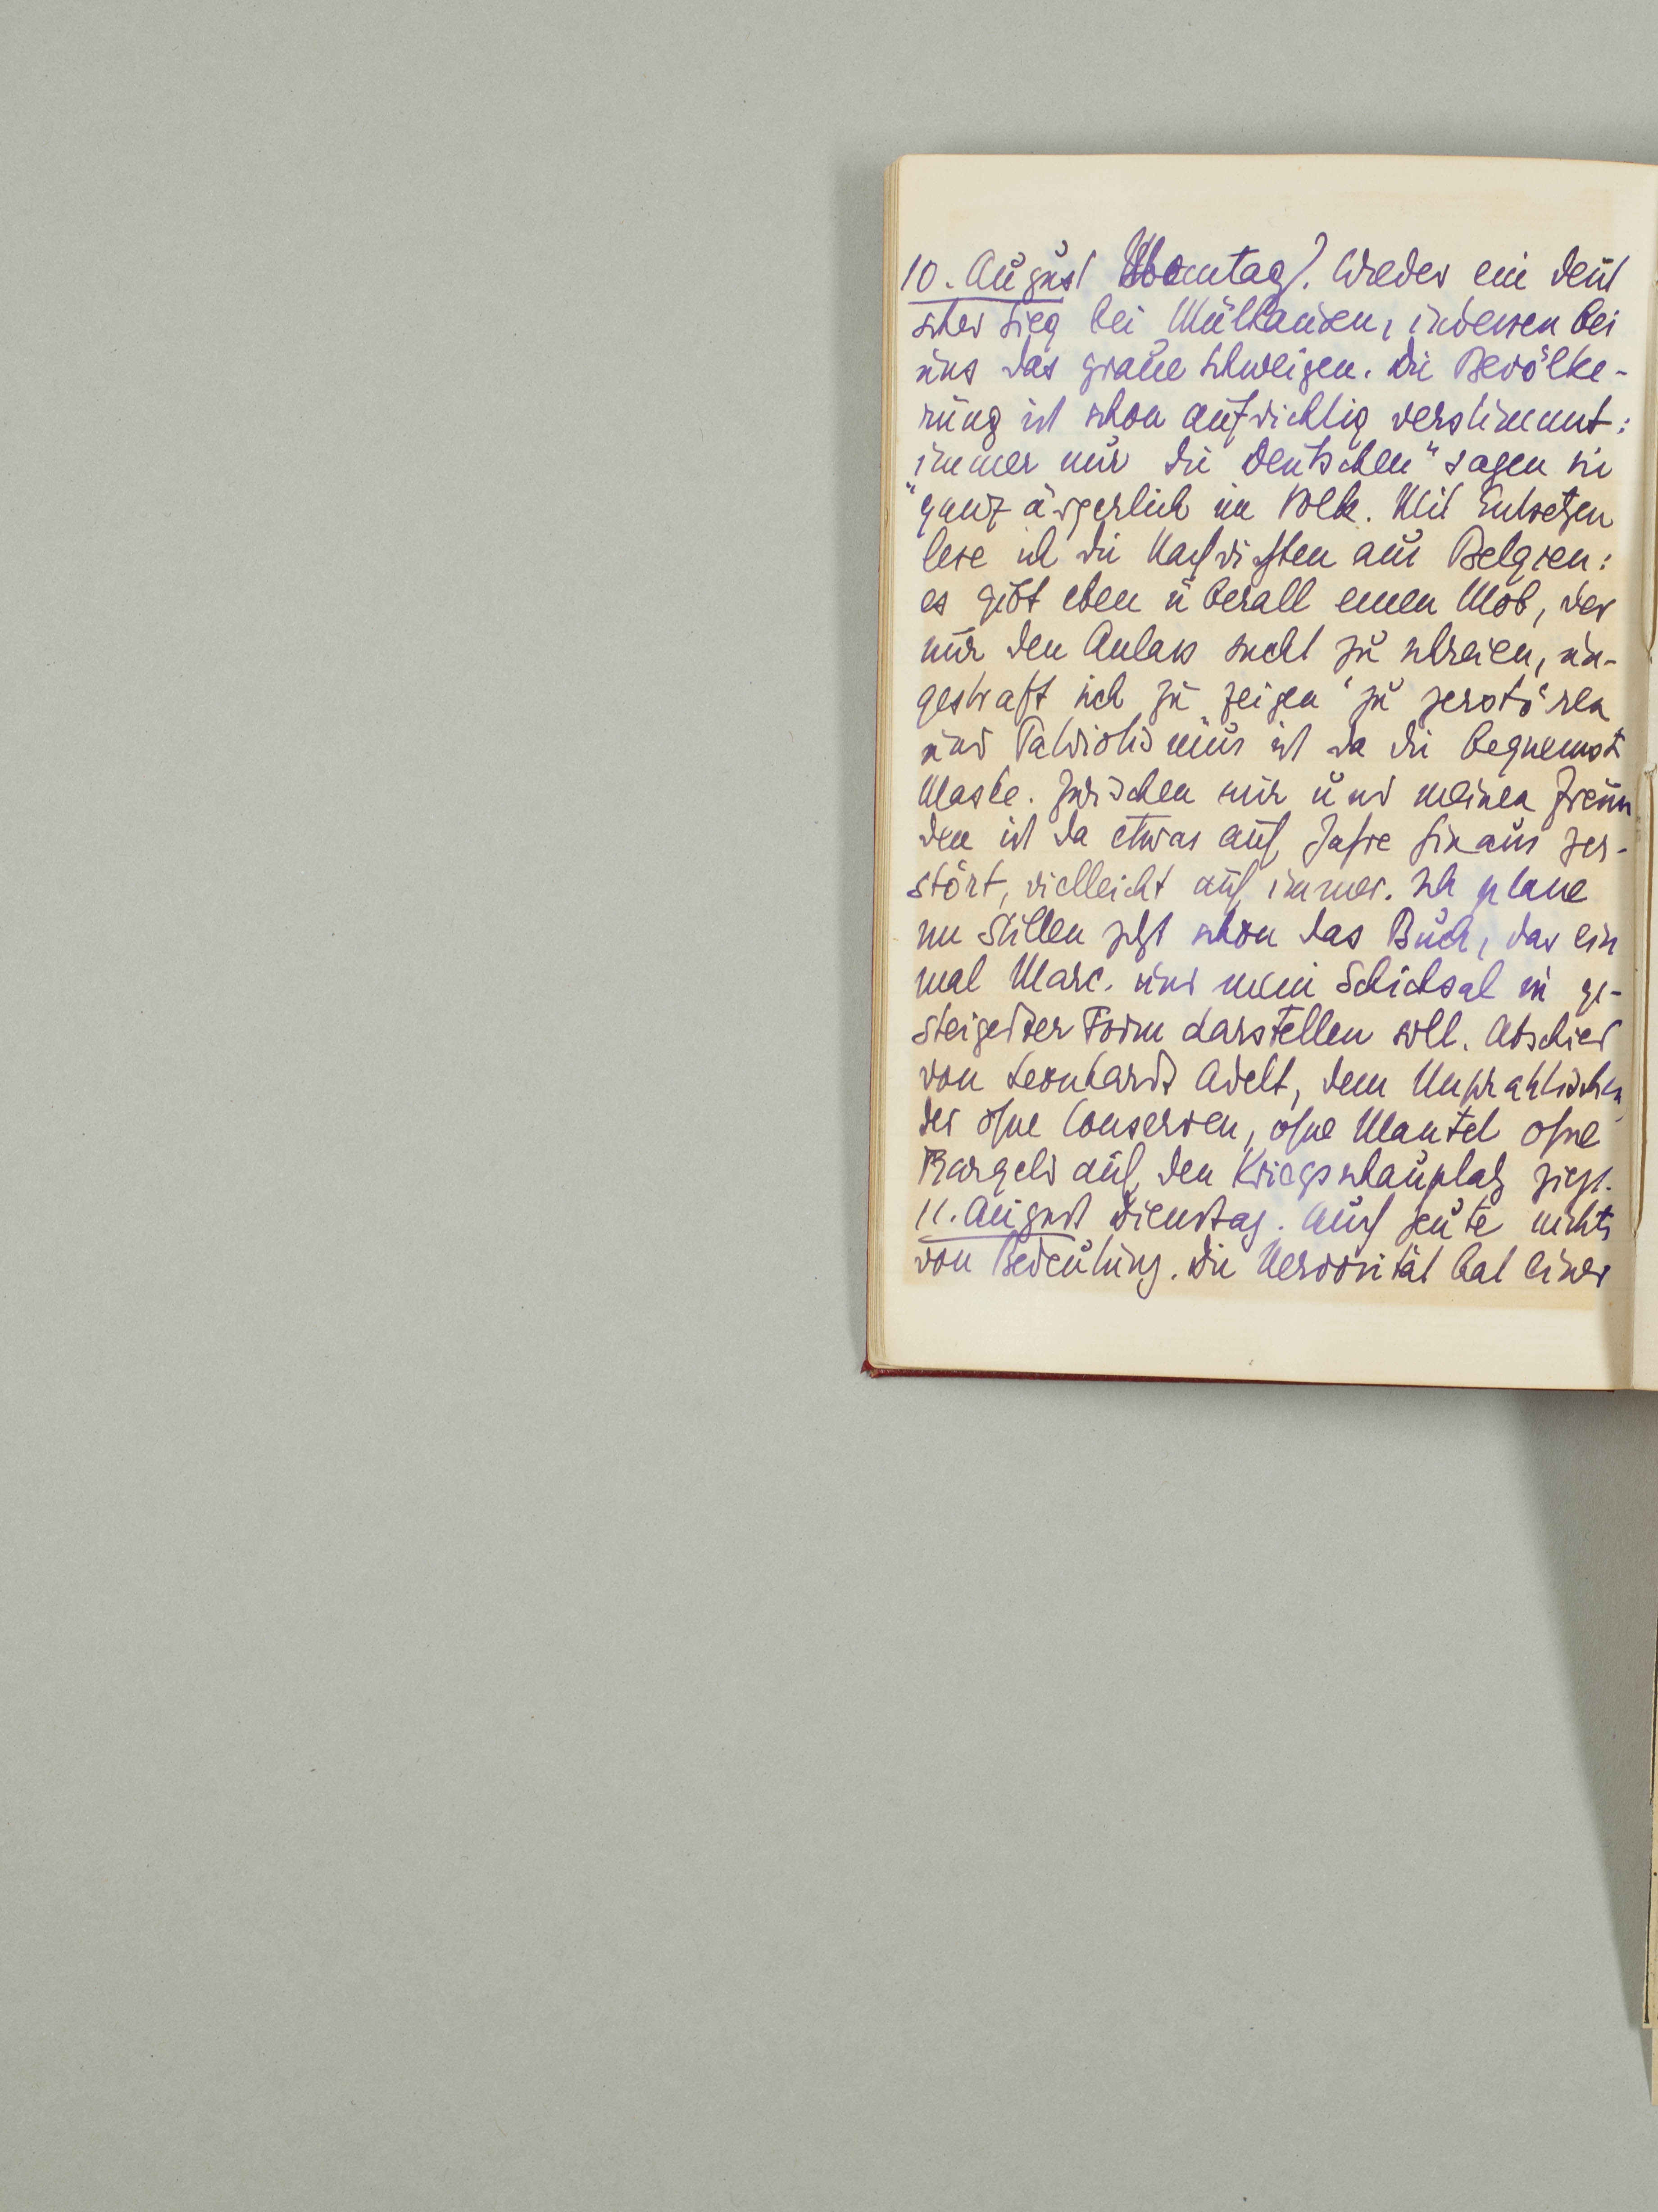 10. August Montag). Wieder ein deut
scher Sieg bei Mülhausen, indessen bei
uns das graue Schweigen. Die Bevölke-
rung ist schon aufrichtig verstimmt:
immer nur die Deutschen" sagen sie
"ganz ärgerlich im Volk. Mit Entsetzen
lese ich die Nachrichten aus Belgien:
es gibt eben überall einen Mob, der
nur den Anlass sucht zu schreien, un-
gestraft sich zu zeigen zu zerstören
und Patriotismus ist da die bequemst
Maske. Zwischen mir und meinen Freun
den ist da etwas auf Jahre hinaus zer-
stört, vielleicht auf immer. Ich plane
im Stillen jetzt schon das Buch, das ein
mal Marc. und mein Schicksal in ge-
steigerter Form darstellen soll. Abschied
von Leonhardt Adelt, dem Unpraktischen,
der ohne Conserven, ohne Mantel ohne
Bargeld auf den Kriegsschauplatz zieht.
11. August Dienstag. Auch heute nichts
von Bedeutung. Die Nervosität hat einer